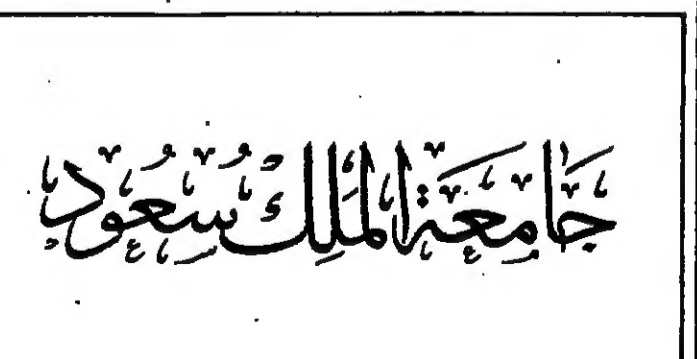 جامعة الملك سعود